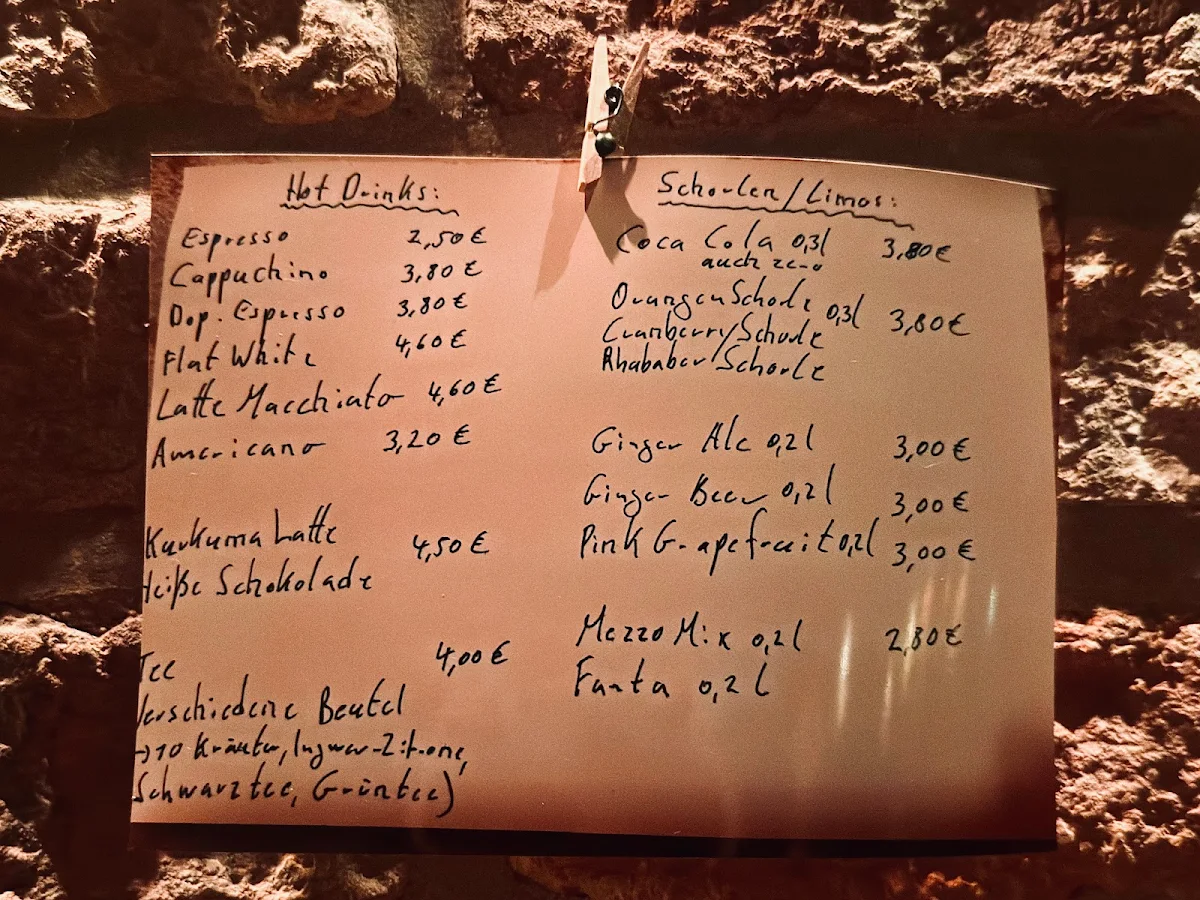 Hot Drinks:
Espresso 2,50€
Cappuchino 3,80€
Dop. Espresso 3,80€
Flat White 4,60€
Latte Macchiato 4,60€
Americano 3,20€
Kurkuma Latte
4,50€
Heiße Schokolade
Tee 4,00€
Verschiedene Beutel
→10 Kräuter, Ingwer-Zitrone,
Schwarztee, Grüntee)
Schorlen/Limos:
Coca Cola 0,3l 3,80€
auch zero
Orangen Schorle
Cranberry Schorle 0,3l 3,80€
Rhababer Schorle
Ginger Ale 0,2l 3,00€
Ginger Beer 0,2l 3,00€
Pink Grapefruit 0,2l 3,00€
Mezzo Mix 0,2l 2,80€
Fanta 0,2l